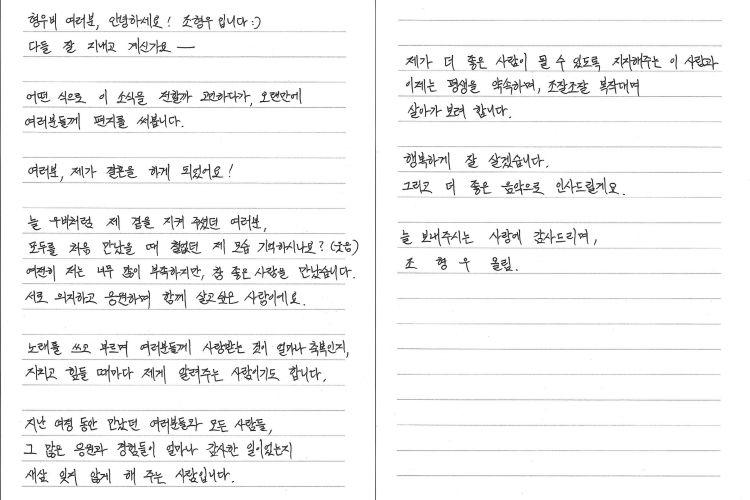 형우비 여러분, 안녕하세요! 조형우입니다:)
다들 잘 지내고 계신가요 —
어떤 식으로 이 소식을 전할까 고민하다가, 오랜만에
여러분들께 편지를 써봅니다.
여러분, 제가 결혼을 하게 되었어요!
늘 우비처럼 제 곁을 지켜 주었던 여러분,
모두를 처음 만났을 때 철없던 제 모습 기억하시나요? (웃음)
여전히 저는 너무 많이 부족하지만, 참 좋은 사람을 만났습니다.
서로 의지하고 응원하며 함께 살고싶은 사람이에요.
노래를 쓰고 부르며 여러분들께 사랑받는 것이 얼마나 축복인지,
지치고 힘들 때마다 제게 알려주는 사람이기도 합니다.
지난 여정 동안 만났던 여러분들과 모든 사람들,
그 많은 응원과 경험들이 얼마나 감사한 일이었는지
새삼 잊지 않게 해 주는 사람입니다.
제가 더 좋은 사람이 될 수 있도록 지지해주는 이 사람과
이제는 평생을 약속하며, 조잘조잘 복작대며
살아가 보려 합니다.
행복하게 잘 살겠습니다.
그리고 더 좋은 음악으로 인사드릴게요.
늘 보내주시는 사랑에 감사드리며,
조 형 우 올림.